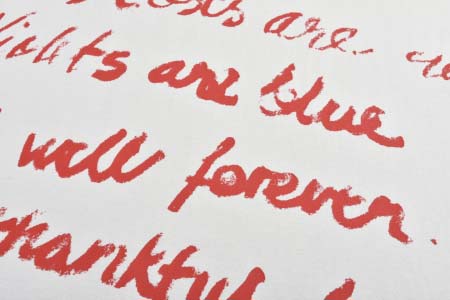 are
lights are blue
will forever.
thankful